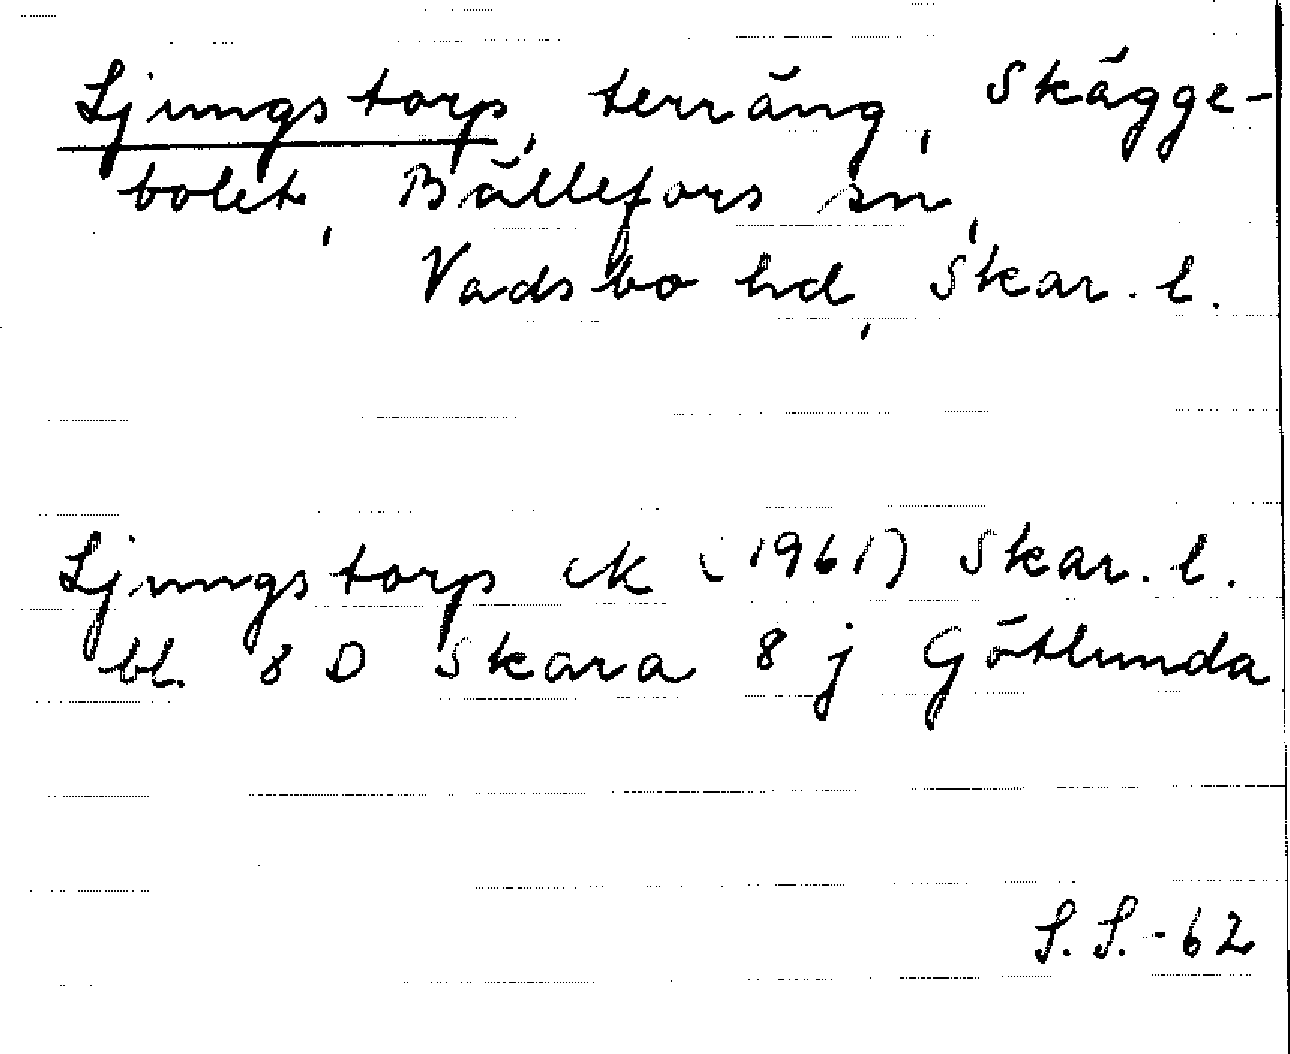 Ljungstorp, terräng, Skägge-
bolet, Bällefors sn,
Vadsbo hd, Skar. l.
Ljungstorp ek (1961) Skar. l.
bl. 8 D Skara 8 j Götlunda
S. S. -62